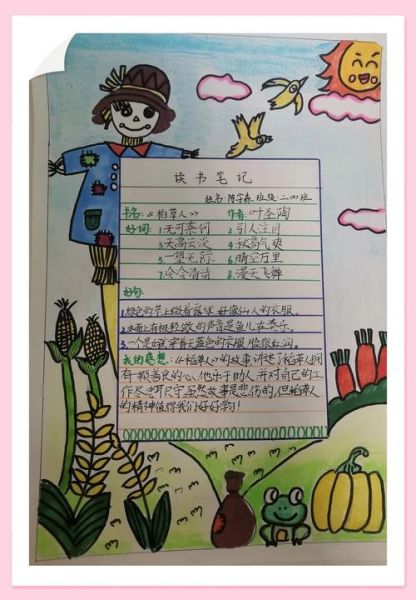 读书笔记
姓名:陈宇森 班级:二(四)班
书名:《稻草人》 作者:叶圣陶
好词:1.无可奈何 2.引人注目
3.天高云淡 4.秋高气爽
5.一望无际 6.晴空万里
7.冷冷清清 8.漫天飞舞
好句:
1.绿色的草上缀着露珠,好像仙人的衣服。
2.水面上有极轻微的声音,是鱼儿在奏乐。
3.一个是女孩,穿着天蓝色的衣服,脸很红润。
我的感想:《稻草人》的故事讲述了稻草人有
有一颗善良的心,他乐于助人,并对自己的工
作尽心尽守,虽然故事是悲伤的,但稻草人
的精神值得我们好好学习!